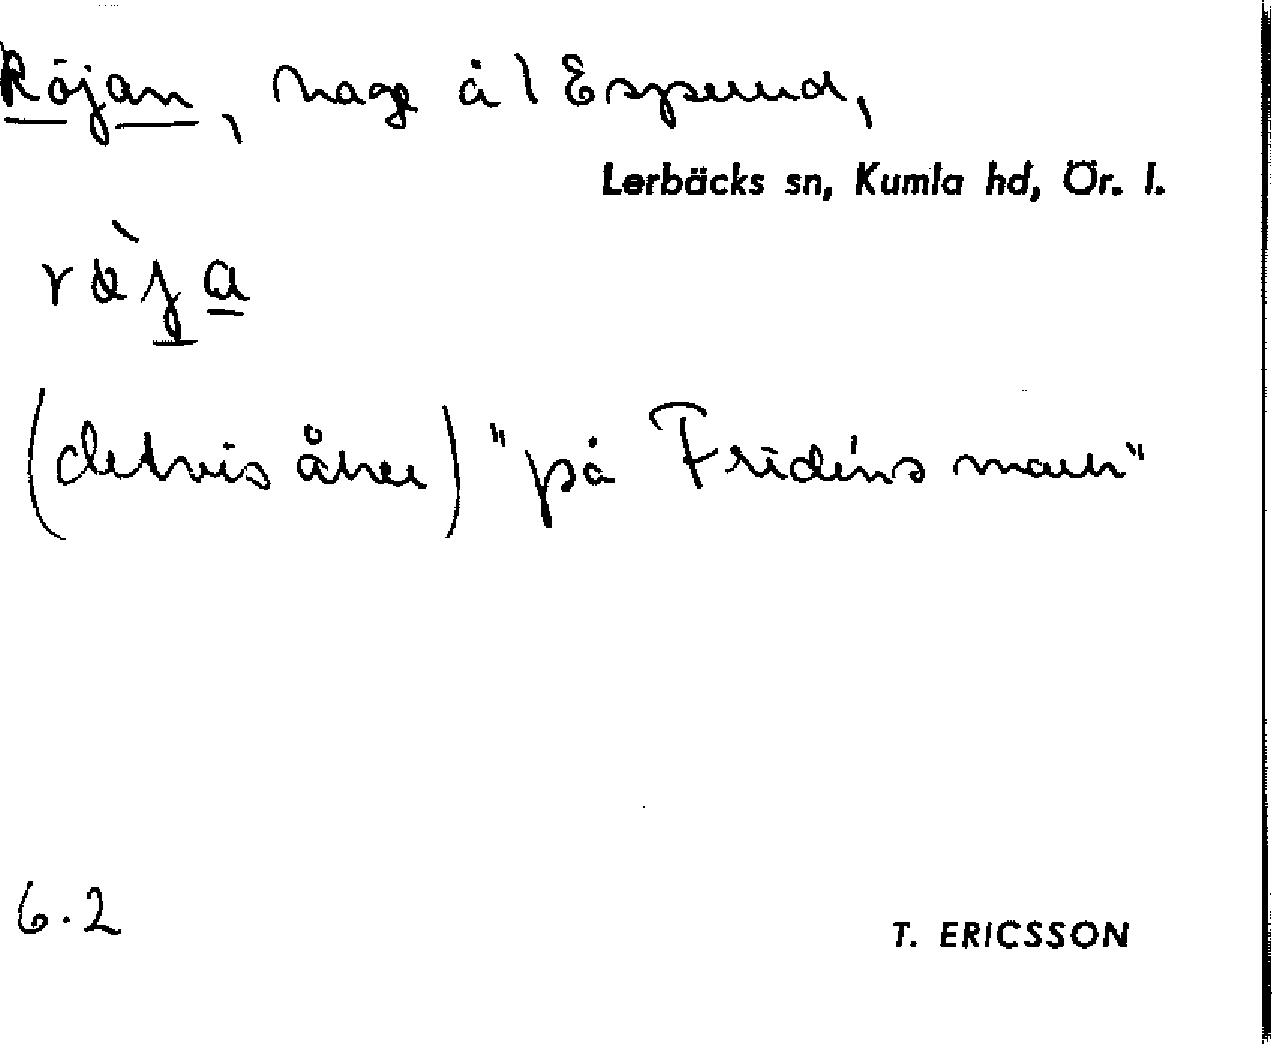 Röjan, hage å 1 Espsund,
Lerbäcks sn, Kumla hd, Ör. l.
(delvis åker) "på Fridéns mark"
6.2
T. ERICSSON